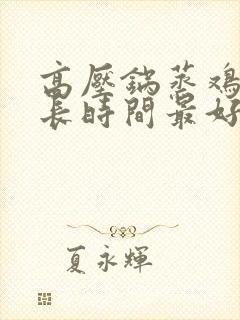 高壓鍋蒸雞
長時間最好
夏永輝